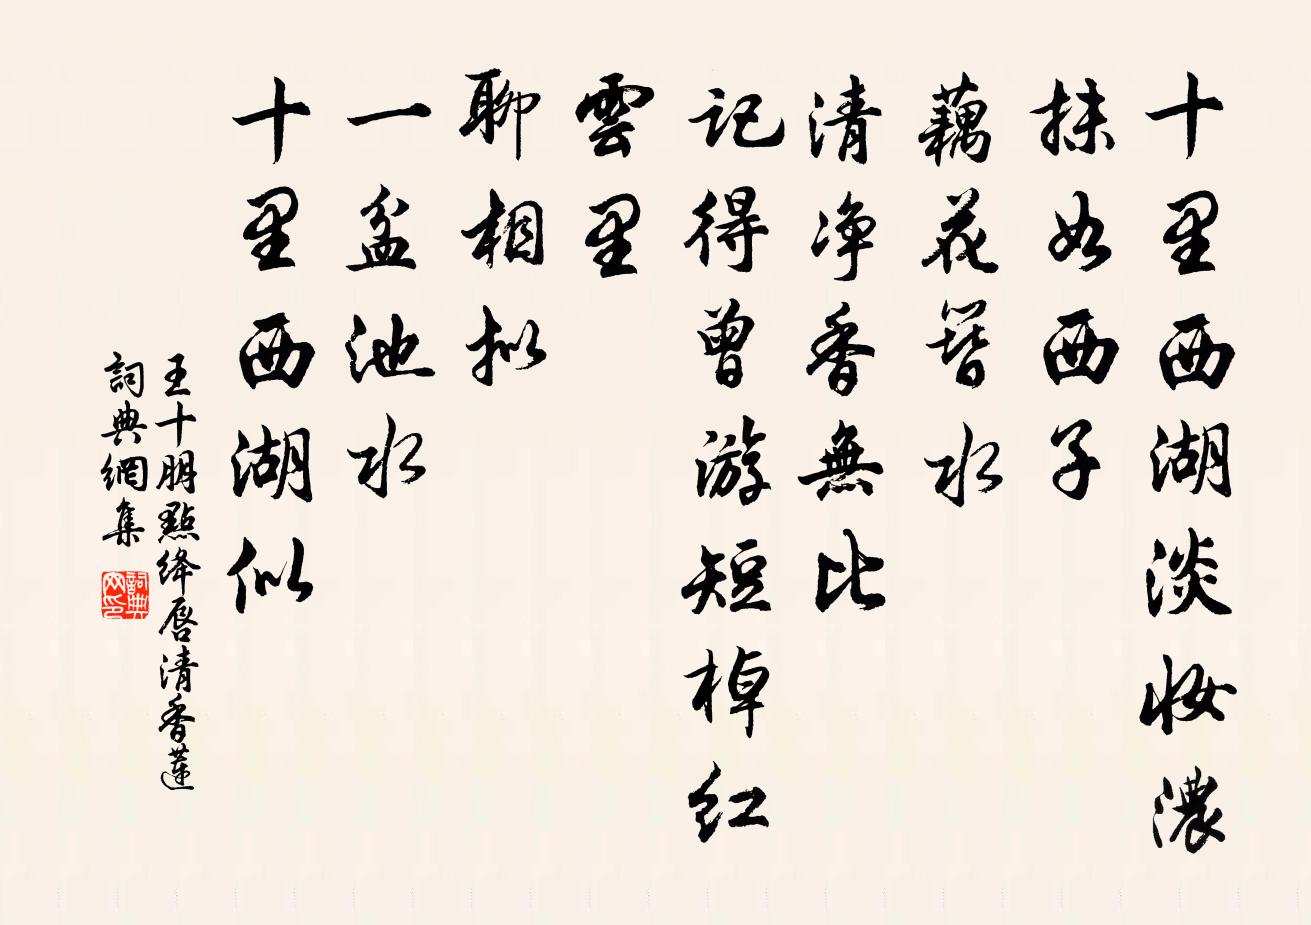 十里西湖淡妆濃
抹如西子
藕花簪水
清净香無比
記得曾游短棹红
雲里
聊相拟
一盆池水
十里西湖似
王十朋點绛唇清香蓮
詞典網集
詞典网印